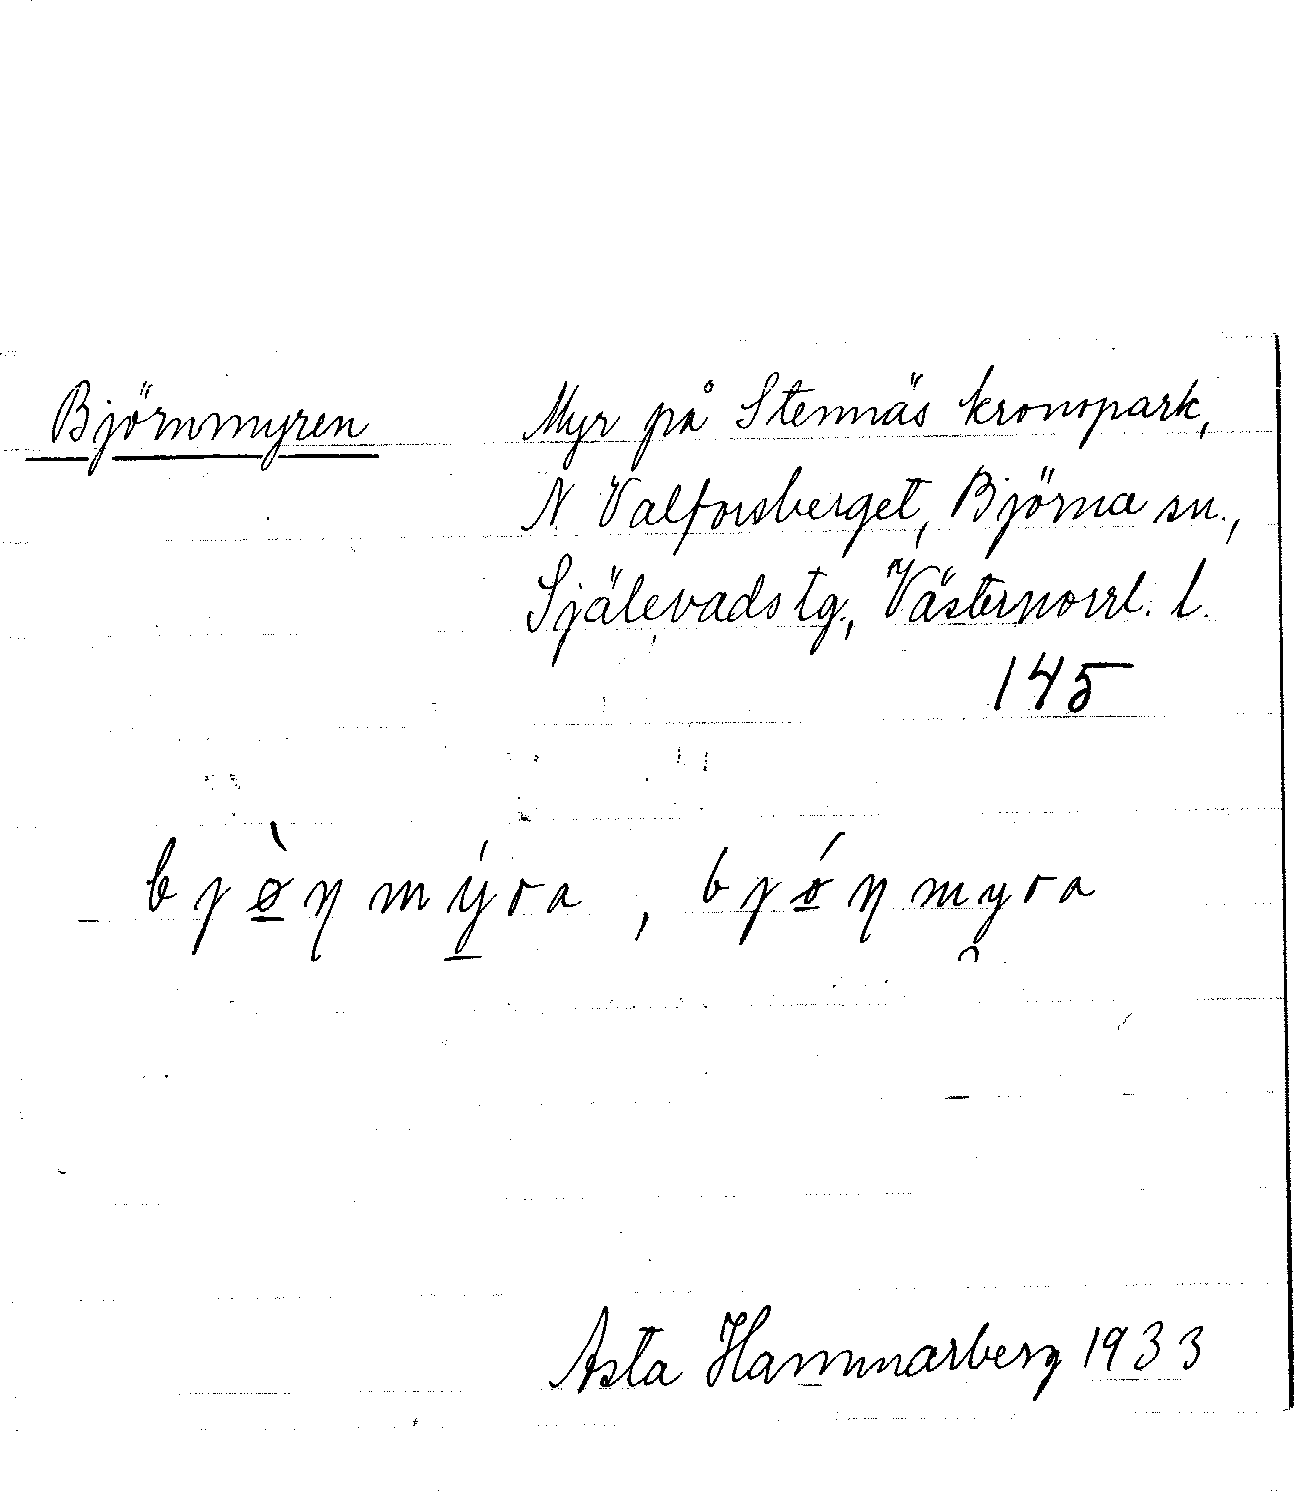 Björnmyren
Myr på Stennäs kronopark,
N Valforsberget, Björna sn.,
Själevads tg., Västernorrl. l.
145
bjø̠̀ŋmý̠ra, bjǿ̠ŋmy̯ra
Asta Hammarberg 1933